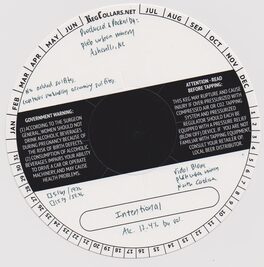 KegCollars.net
JAN FEB MAR APR MAY JUN JUL AUG SEP OCT NOV DEC
Produced & Packed by:
plēb urban winery
Asheville, NC
no added sulfites,
contains naturally occurring sulfites
GOVERNMENT WARNING:
(1) ACCORDING TO THE SURGEON
GENERAL, WOMEN SHOULD NOT
DRINK ALCOHOLIC BEVERAGES
DURING PREGNANCY BECAUSE OF
THE RISK OF BIRTH DEFECTS.
(2) CONSUMPTION OF ALCOHOLIC
BEVERAGES IMPAIRS YOUR ABILITY
TO DRIVE A CAR OR OPERATE
MACHINERY, AND MAY CAUSE
HEALTH PROBLEMS.
ATTENTION - READ
BEFORE TAPPING:
THIS KEG MAY RUPTURE AND CAUSE
INJURY IF OVER-PRESSURIZED WITH
COMPRESSED AIR OR CO2. TAPPING
SYSTEM AND PRESSURIZED
REGULATOR SHOULD BE
EQUIPPED WITH A PRESSURE RELIEF
(BLOW OFF) DEVICE. IF YOU ARE NOT
FAMILIAR WITH TAPPING EQUIPMENT,
CONSULT YOUR RETAILER OR
LOCAL BEER DISTRIBUTOR.
Vidal Blanc
plēb urban winery
North Carolina
Intentional
Alc. 12.4% by vol.
1 2 3 4 5 6 7 8 9 10 11 12 13 14 15 16 17 18 19 20 21 22 23 24 25 26 27 28 29 30 31